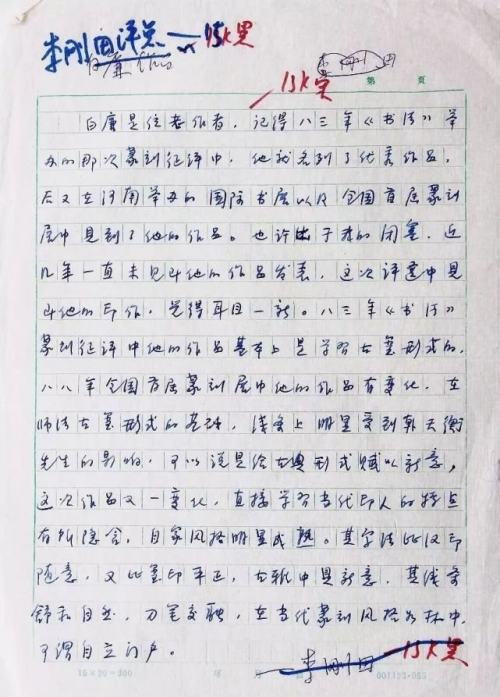 李刚田评点 — 15K黑
李刚田
15K黑
第 頁
白廉是位老作者，记得八三年《书法》举
办的那次篆刻征评中，他就名列了优秀作品，
后又在河南举办的国际书展以及全国首届篆刻
展中见到了他的作品。也许出于我的闭塞，近
几年一直未见到他的作品发表，这次评选中见
到他的印作，觉得耳目一新。八三年《书法》
篆刻征评中他的作品基本上是学习古玺形式的，
八八年全国首届篆刻展中他的作品有变化，在
师法古玺形式的基础，线条上明显受到韩天衡
先生的影响，可以说是给古典形式赋以新意，
这次作品又一变化，直接学习当代印人的特点
有所隐含，自家风格明显成熟。其字法比汉印
随意，又比玺印平正，古雅中见新意，其线条
舒和自然，刀笔交融，在当代篆刻风格如林中，
可谓自立门户。
李刚田 15K黑
15×20=300